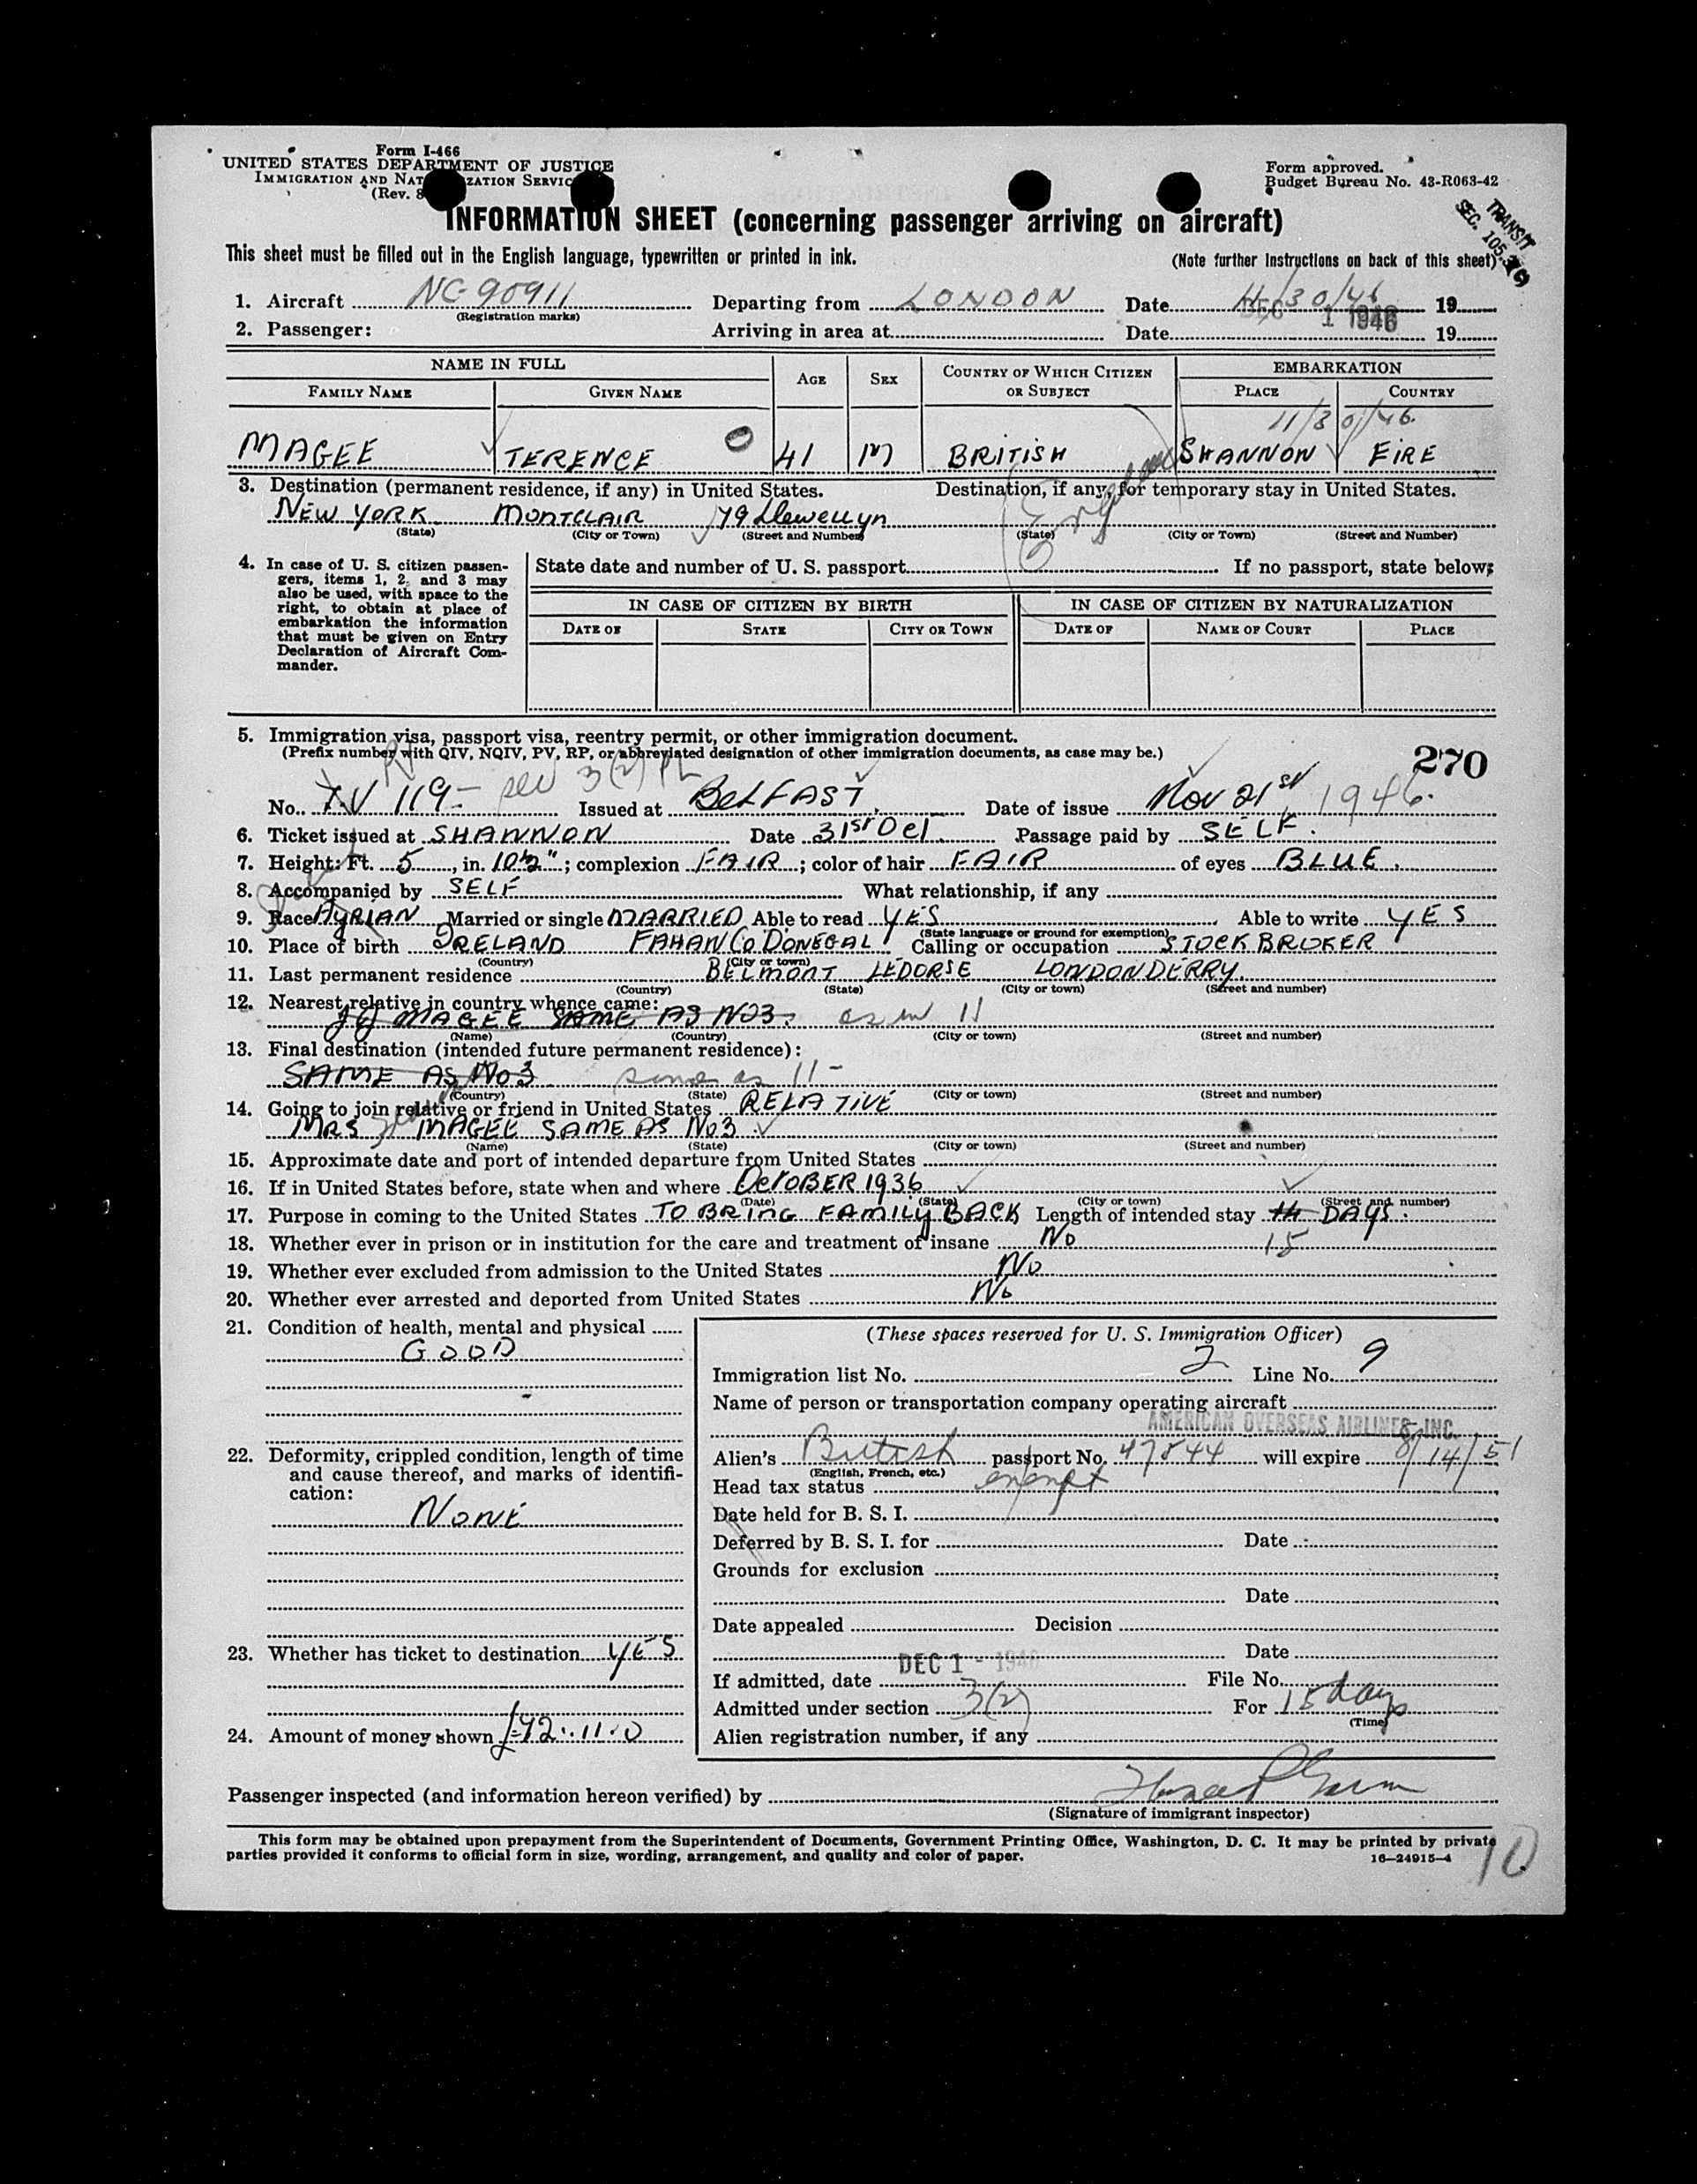 Form I-466
UNITED STATES DEPARTMENT OF JUSTICE
IMMIGRATION AND NAT ZATION SERVIC
(Rev. 8
Form approved.
Budget Bureau No. 43-R063-42
TRANSIT
SEC. 105.
INFORMATION SHEET (concerning passenger arriving on aircraft)
This sheet must be filled out in the English language, typewritten or printed in ink. (Note further Instructions on back of this sheet)
1. Aircraft NC 90911 Departing from LONDON Date 11/30/46 19
(Registration marks) DEC 1 1946
2. Passenger: Arriving in area at Date 19
NAME IN FULL AGE SEX COUNTRY OF WHICH CITIZEN OR SUBJECT EMBARKATION
FAMILY NAME GIVEN NAME PLACE COUNTRY
11/30/46
MAGEE TERENCE O 41 M BRITISH SHANNON EIRE
3. Destination (permanent residence, if any) in United States. Destination, if any, for temporary stay in United States.
NEW YORK MONTCLAIR 79 Llewellyn
(State) (City or Town) (Street and Number) (State) (City or Town) (Street and Number)
4. In case of U. S. citizen passengers, items 1, 2, and 3 may also be used, with space to the right, to obtain at place of embarkation the information that must be given on Entry Declaration of Aircraft Commander.
State date and number of U. S. passport If no passport, state below:
IN CASE OF CITIZEN BY BIRTH IN CASE OF CITIZEN BY NATURALIZATION
DATE OF STATE CITY OR TOWN DATE OF NAME OF COURT PLACE
5. Immigration visa, passport visa, reentry permit, or other immigration document.
(Prefix number with QIV, NQIV, PV, RP, or abbreviated designation of other immigration documents, as case may be.) 270
No. 119 - sec 3(2) Issued at BELFAST Date of issue Nov 21st 1946.
6. Ticket issued at SHANNON Date 31st Oct. Passage paid by SELF.
7. Height: Ft. 5, in. 10½"; complexion FAIR; color of hair FAIR of eyes BLUE.
8. Accompanied by SELF What relationship, if any
9. Race AYRIAN Married or single MARRIED Able to read YES Able to write YES
(State language or ground for exemption)
10. Place of birth IRELAND FAHAN Co. DONEGAL Calling or occupation STOCK BROKER
(Country) (City or town)
11. Last permanent residence BELMONT LEDORSE LONDONDERRY.
(Country) (State) (City or town) (Street and number)
12. Nearest relative in country whence came:
MAGEE SAME AS NO3. as in 11
(Name) (Country) (City or town) (Street and number)
13. Final destination (intended future permanent residence):
SAME AS No 3 same as 11 -
(Country) (State) (City or town) (Street and number)
14. Going to join relative or friend in United States RELATIVE
MRS MAGEE SAME AS No3
(Name) (State) (City or town) (Street and number)
15. Approximate date and port of intended departure from United States
16. If in United States before, state when and where OCTOBER 1936
(Date) (State) (City or town) (Street and number)
17. Purpose in coming to the United States TO BRING FAMILY BACK Length of intended stay 14 DAYS.
18. Whether ever in prison or in institution for the care and treatment of insane No 15
19. Whether ever excluded from admission to the United States No
20. Whether ever arrested and deported from United States No
21. Condition of health, mental and physical
GOOD
22. Deformity, crippled condition, length of time and cause thereof, and marks of identification:
NONE
23. Whether has ticket to destination YES
24. Amount of money shown £92.11.0
(These spaces reserved for U. S. Immigration Officer)
Immigration list No. 2 Line No. 9
Name of person or transportation company operating aircraft
AMERICAN OVERSEAS AIRLINES, INC.
Alien's British passport No. 47844 will expire 8/14/51
(English, French, etc.)
Head tax status exempt
Date held for B. S. I.
Deferred by B. S. I. for Date
Grounds for exclusion
Date
Date appealed Decision
Date
If admitted, date DEC 1 - 1946 File No.
Admitted under section 3(2) For 15 days
(Time)
Alien registration number, if any
Passenger inspected (and information hereon verified) by
(Signature of immigrant inspector)
This form may be obtained upon prepayment from the Superintendent of Documents, Government Printing Office, Washington, D. C. It may be printed by private
parties provided it conforms to official form in size, wording, arrangement, and quality and color of paper. 16—24915-4
10